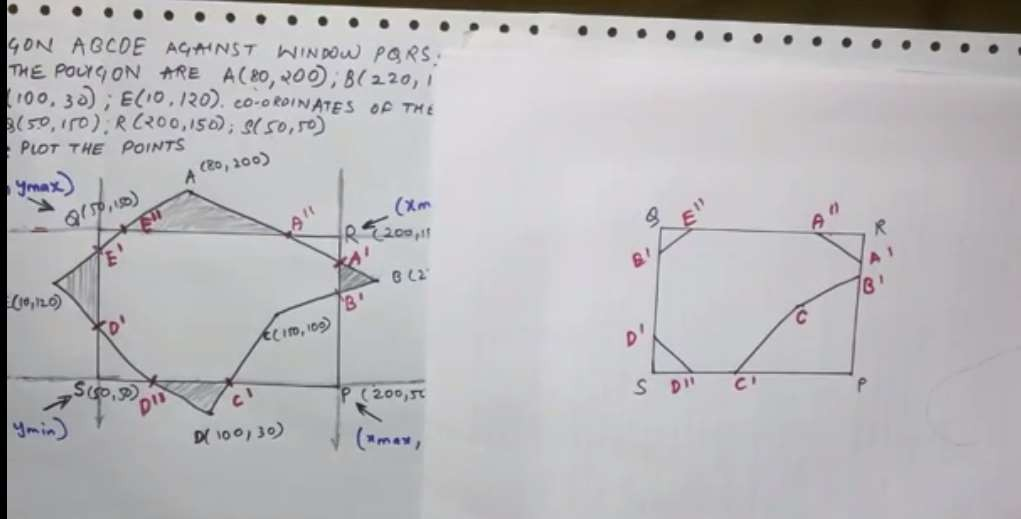 GON ABCDE AGAINST WINDOW PQRS.
THE POLYGON ARE A(80,200); B(220, 1
(100,30); E(10,120). CO-ORDINATES OF THE
(50,150); R(200,150); S(50,50)
PLOT THE POINTS
A (80,200)
ymax)
Q(50,150)
E''
A''
(xm
R (200,15
E'
A'
B (2
E(10,120)
B'
C(150,100)
D'
S(50,50)
D''
C'
P (200,50
ymin)
D(100,30)
(xmax,
Q E'' A'' R
E' A'
B'
C
D'
S D'' C' P